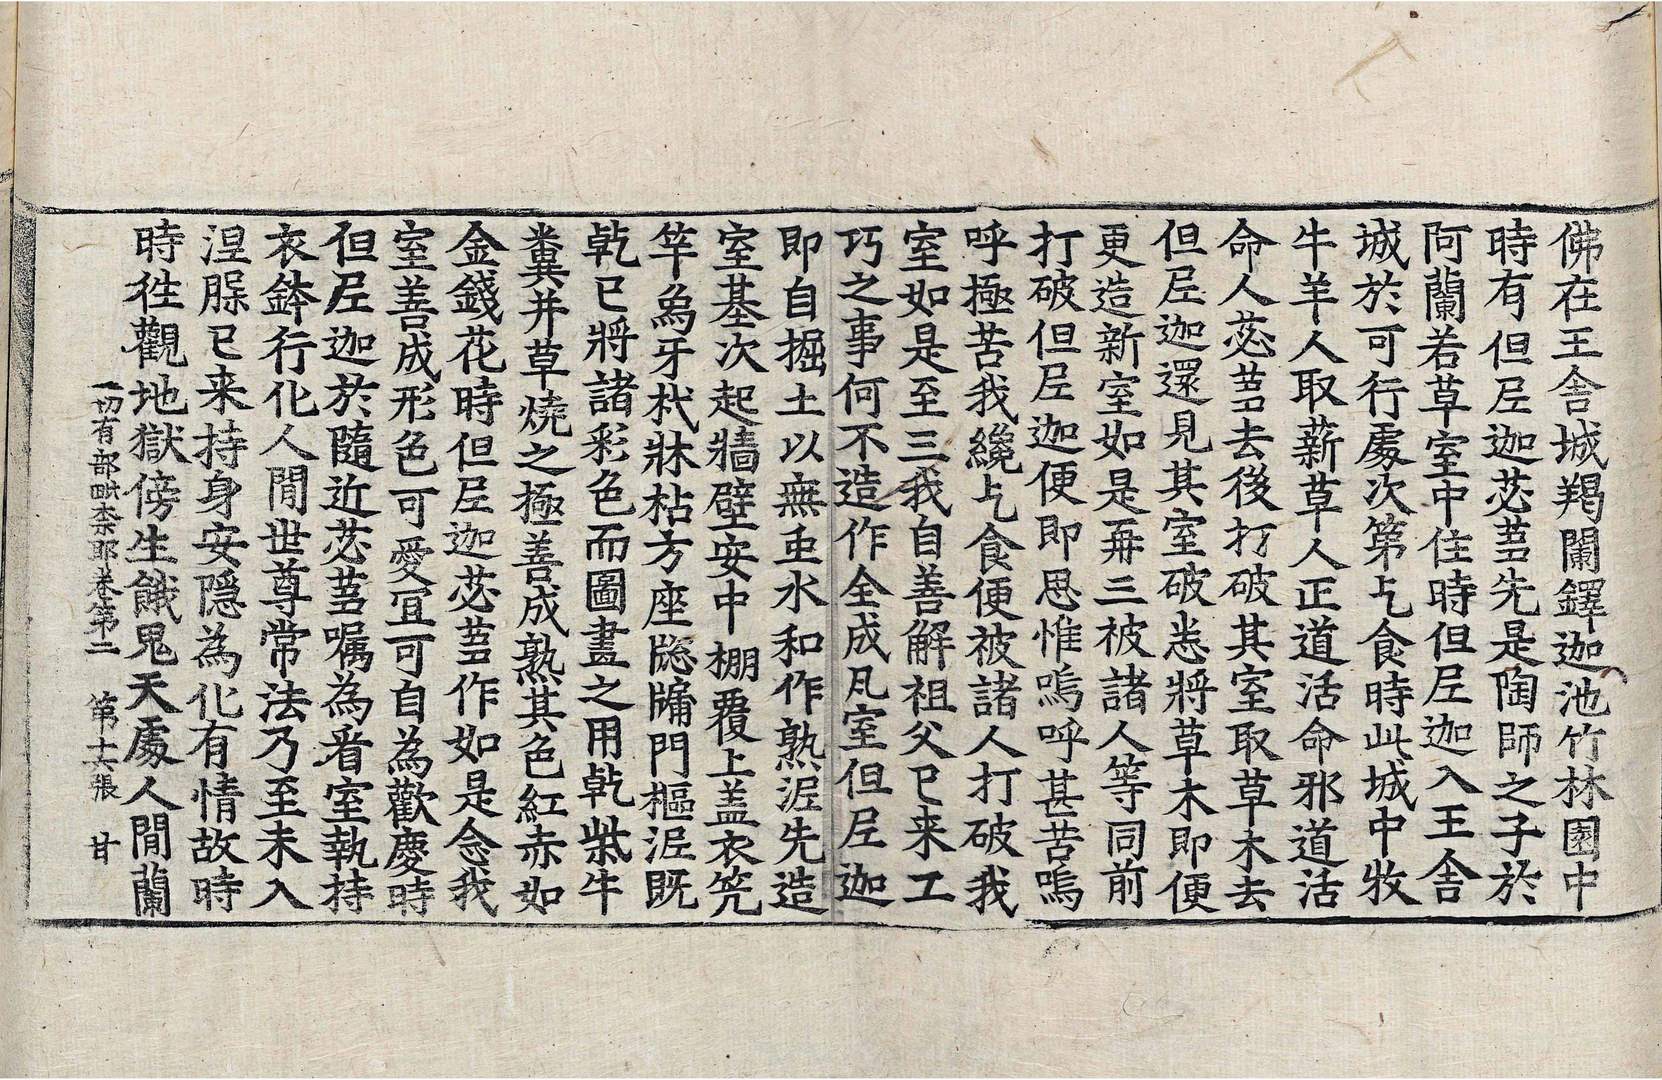 佛在王舍城羯闌鐸迦池竹林園中
時有但尼迦苾芻先是陶師之子於
阿蘭若草室中住時但尼迦入王舍
城於可行處次第乞食時此城中牧
牛羊人取薪草人正道活命邪道活
命人苾芻去後打破其室取草木去
但尼迦還見其室破悉將草木即便
更造新室如是再三被諸人等同前
打破但尼迦便即思惟嗚呼甚苦嗚
呼極苦我纔乞食便被諸人打破我
室如是至三我自善解祖父已来工
巧之事何不造作全成凡室但尼迦
即自掘土以無虫水和作熟泥先造
室基次起牆壁安中棚覆上蓋衣笐
竿象牙杙牀枯方座䆫牖門樞泥既
乾已將諸彩色而圖畫之用乾柴牛
糞并草燒之極善成熟其色紅赤如
金錢花時但尼迦苾芻作如是念我
室善成形色可愛宜可自為歡慶時
但尼迦於隨近苾芻囑為看室執持
衣鉢行化人間世尊常法乃至未入
涅槃已来持身安隱為化有情故時
時往觀地獄傍生餓鬼天處人間蘭
一切有部毗奈耶卷第二　第十六張　甘